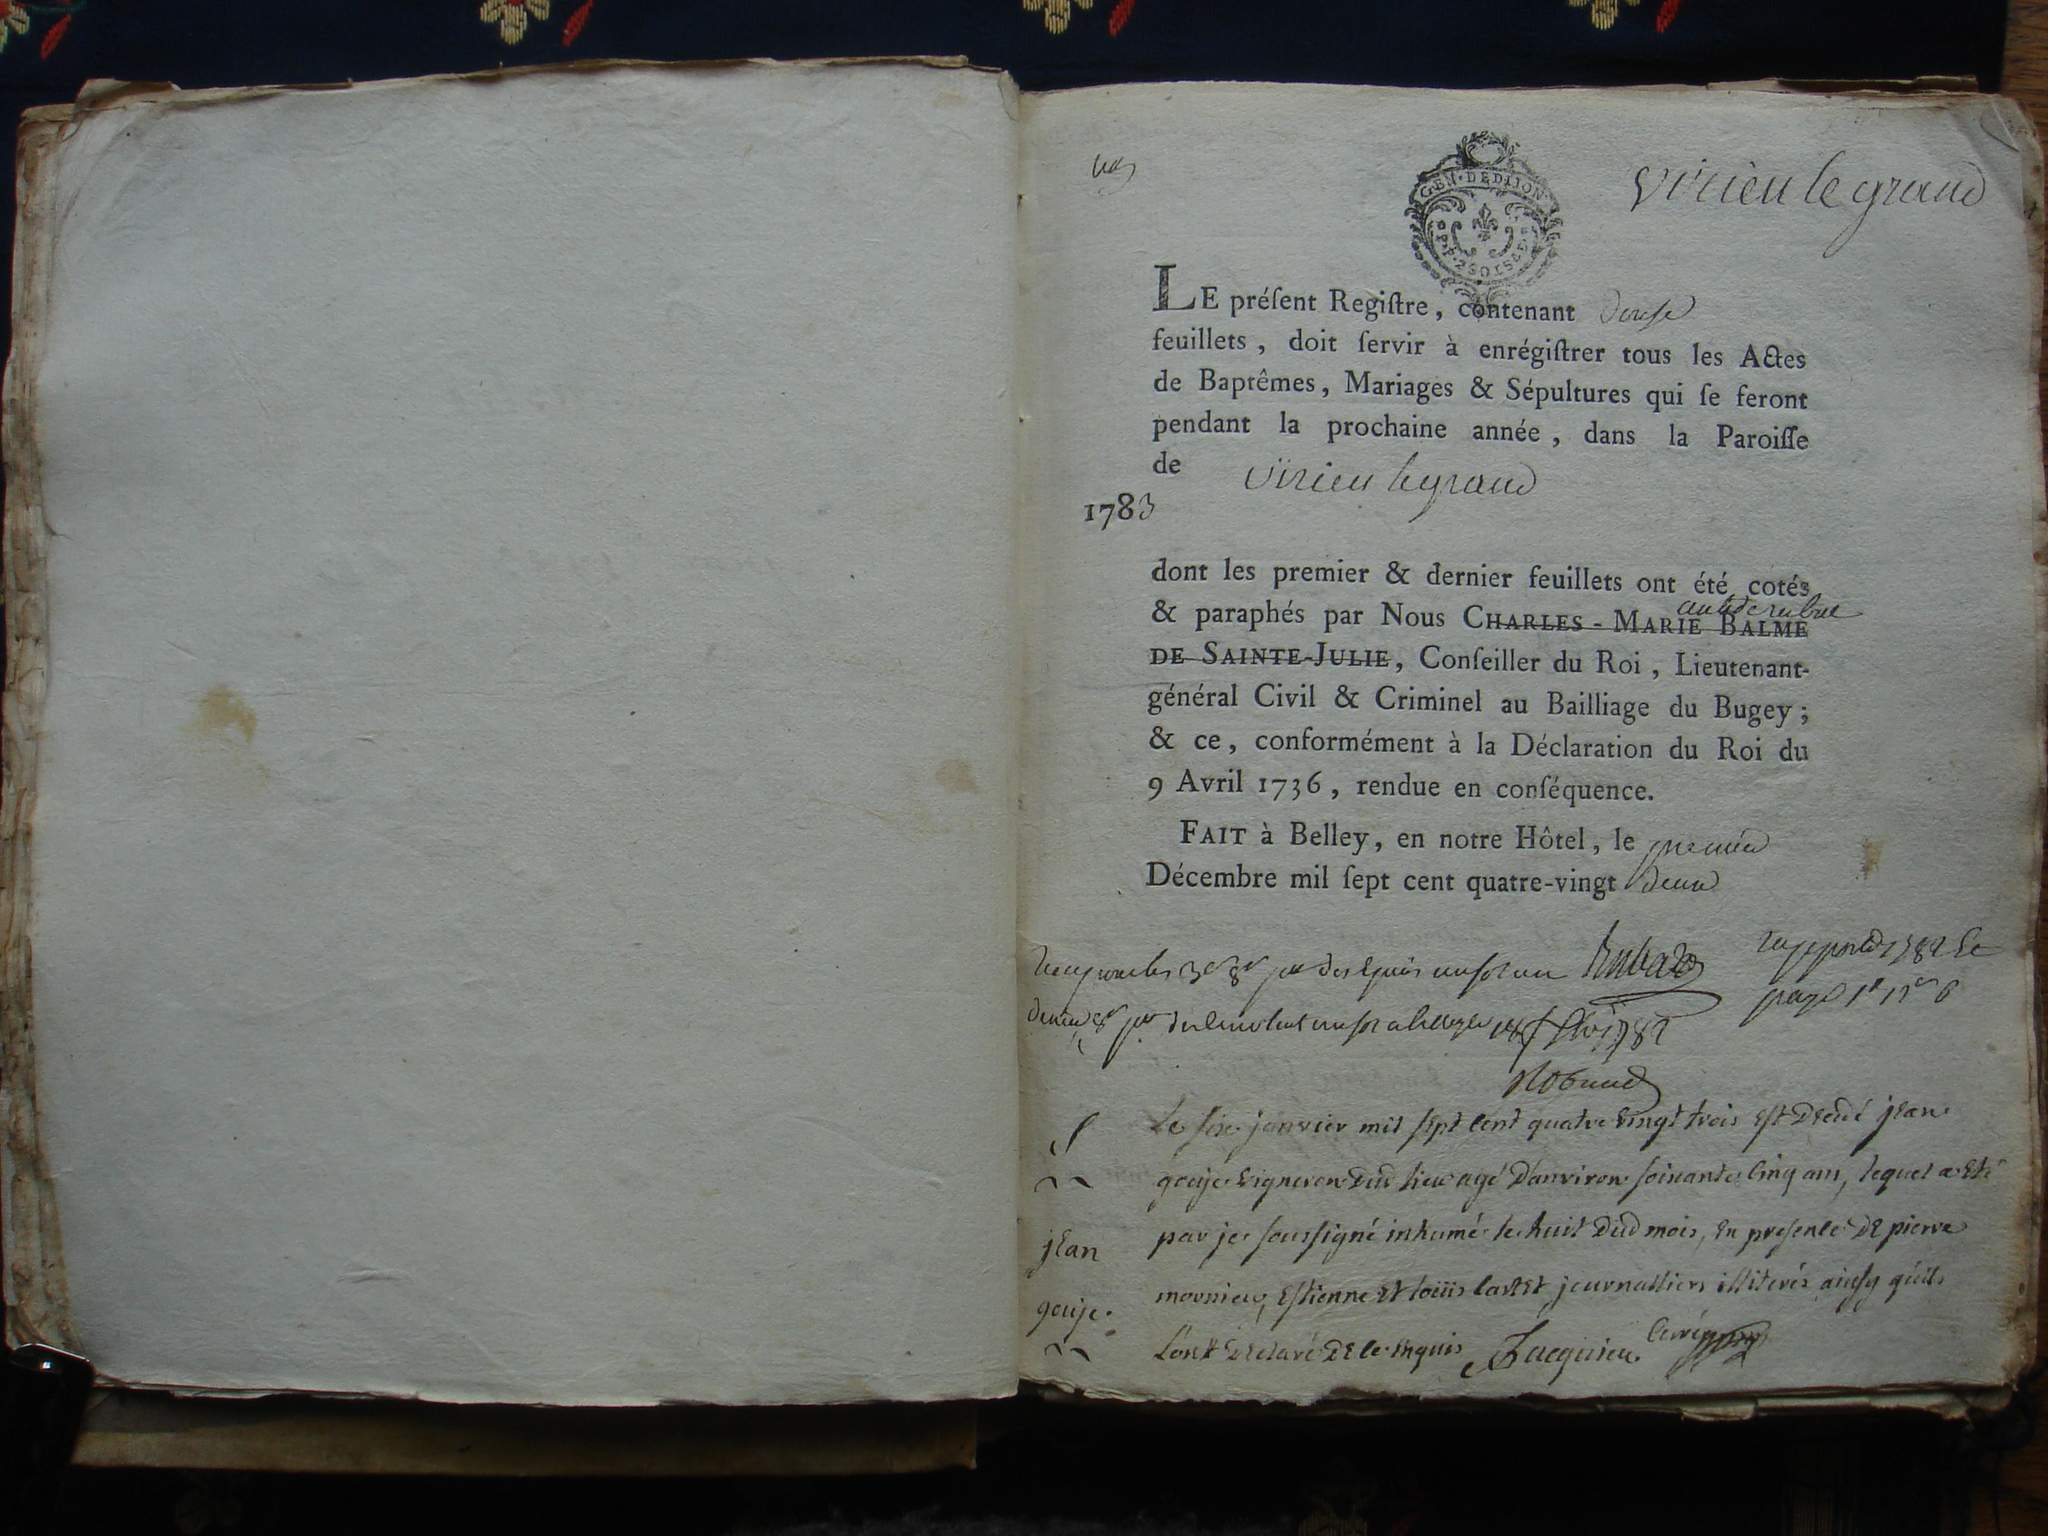 virieu le grand
GEN·DEDIJON
LE préſent Regiſtre, contenant douse
feuillets, doit ſervir à enrégiſtrer tous les Actes
de Baptêmes, Mariages & Sépultures qui ſe feront
pendant la prochaine année, dans la Paroiſſe
de virieu legrand
1783
dont les premier & dernier feuillets ont été cotés
& paraphés par Nous CHARLES-MARIE BALME
DE SAINTE-JULIE, Conſeiller du Roi, Lieutenant-
général Civil & Criminel au Bailliage du Bugey;
& ce, conformément à la Déclaration du Roi du
9 Avril 1736, rendue en conſéquence.
FAIT à Belley, en notre Hôtel, le premier
Décembre mil ſept cent quatre-vingt deux
Rubat
S
jean
gouje
Le six janvier mil sept cent quatre vingt trois est decedé jean
gouje vigneron dud lieu agé d'anviron soixante cinq ans, lequel a eté
par je soussigné inhumé le huit dud mois, en presence de pierre
mornieu, estienne et loüis cartet journalliers illiterés ainsy qu'ils
l'ont declaré de ce enquis Jacquieu curé